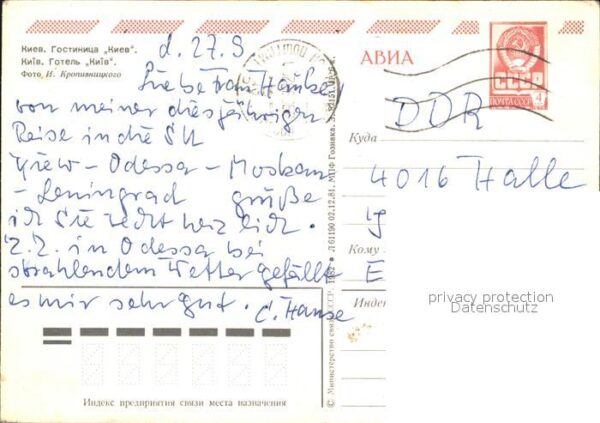 Киев. Гостиница „Киев".
Київ. Готель „Київ".
Фото И. Кропивницкого
d. 27.9.
Liebe Frau Hauber
von meiner diesjährigen
Reise in die SU
Kiew – Odessa – Moskau
– Leningrad grüße
ich Sie recht herzlich.
Z.Z. in Odessa bei
strahlendem Wetter gefällt
es mir sehr gut.
Индекс предприятия связи места назначения
© Министерство связи СССР. 1982
Л 61190 02.12.81. МПФ Гознака.
АВИА
СССР
ПОЧТА СССР
4
DDR
Куда
4016 Halle
Кому
E
privacy protection
Datenschutz